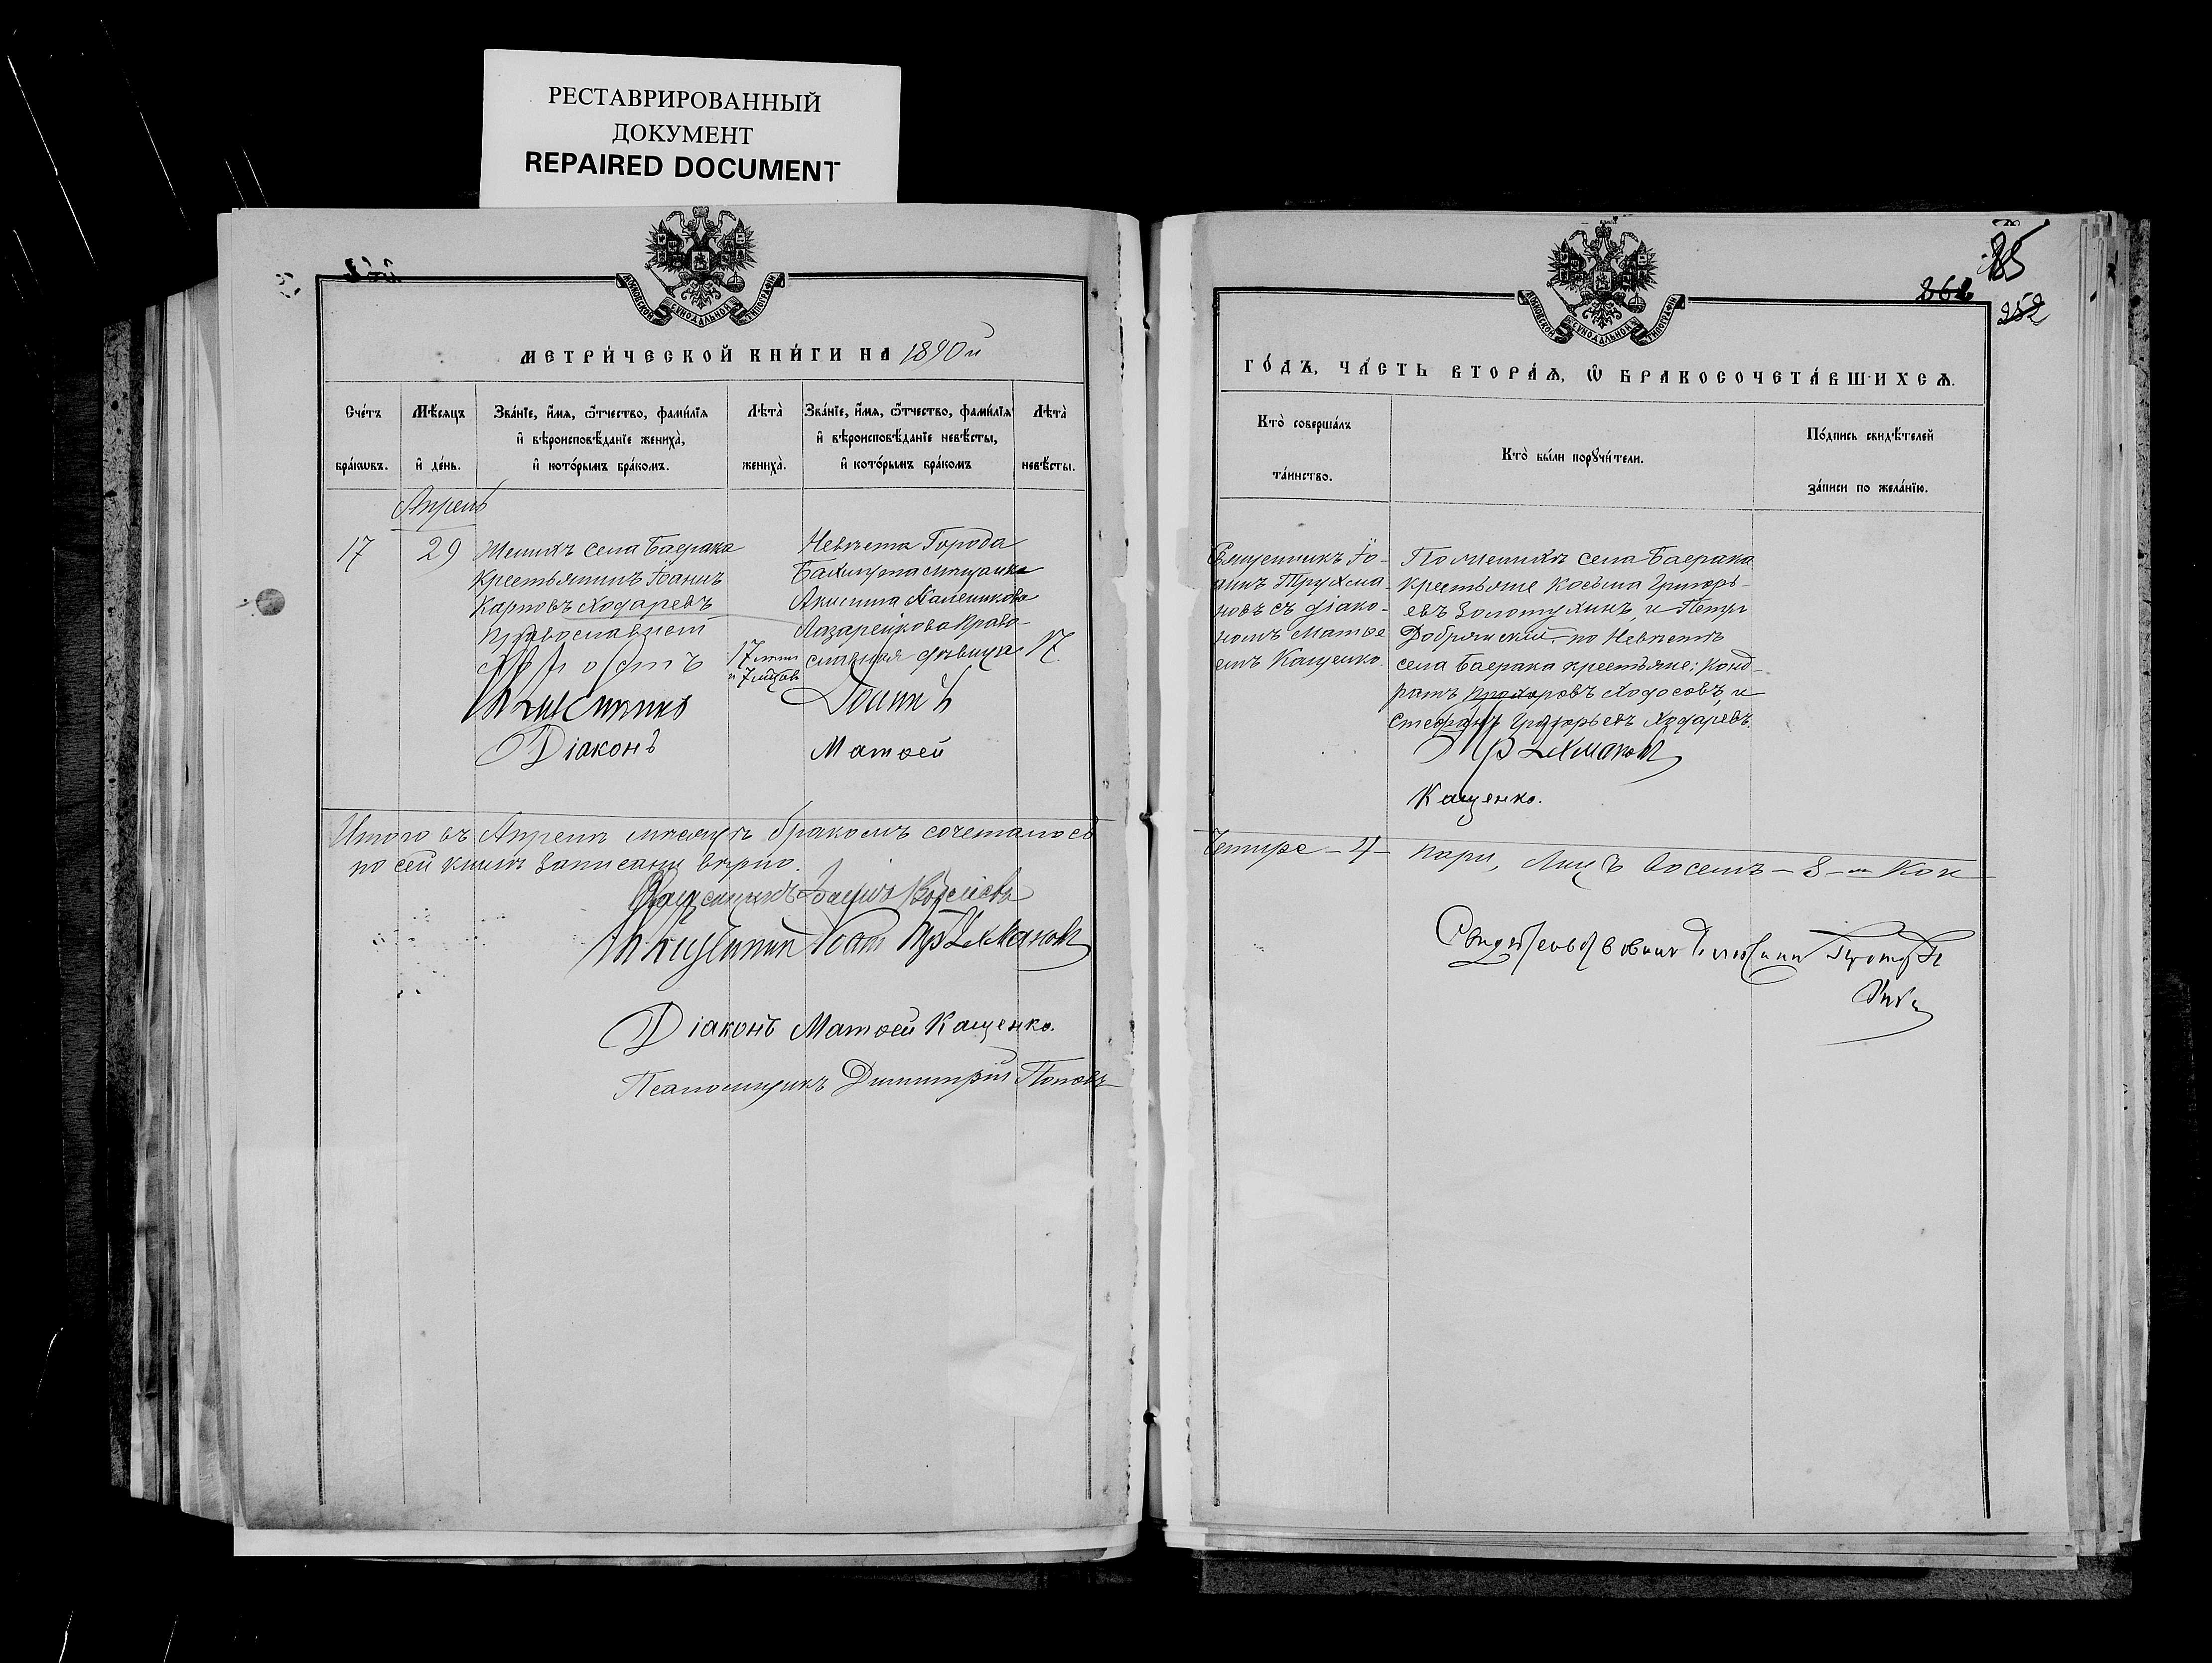 РЕСТАВРИРОВАННЫЙ
ДОКУМЕНТ
REPAIRED DOCUMENT
МОСКОВСКОЙ СУНОДАЛЬНОЙ ТИПОГРАФІИ
МЕТРИ́ЧЕСКОЙ КНИ́ГИ НА 1890 й
Сче́тъ
бра́кѡвъ.
Мѣ́сяцъ
и҆ де́нь.
Зва́нїе, и҆́мя, ѻ҆́тчество, фами́лїя
и҆ вѣроисповѣ́данїе жениха̀,
и҆ кото́рымъ бра́комъ.
Лѣта̀
жениха̀.
Зва́нїе, и҆́мя, ѻ҆́тчество, фами́лїя
и҆ вѣроисповѣ́данїе невѣ́сты,
и҆ кото́рымъ бра́комъ
Лѣта̀
невѣ́сты.
Апрель
17
29
Женихъ села Баерака
Крестьянинъ Іоаннъ
Карповъ Ходаревъ
Православнаго
17 лѣтъ
и 7 мѣсяц
Невѣста Города
Бахмута мѣщанка
Акилина Каленикова
Лазаренкова Право-
славная дѣвица
17
Священникъ
Іоаннъ
Діаконъ
Матѳей
Итого въ Апрелѣ мѣсяцѣ бракомъ сочеталось
по сей книгѣ записаны вѣрно.
Священникъ Іоаннъ
Священникъ Іоан Трухманов
Діаконъ Матѳей Кащенко.
Псаломщикъ Димитрій Поповъ
85
252
МОСКОВСКОЙ СУНОДАЛЬНОЙ ТИПОГРАФІИ
ГО́ДЪ, ЧА́СТЬ ВТОРА́Ѧ, Ѡ҆ БРАКОСОЧЕТА́ВШИХСѦ.
Кто̀ соверша́лъ
та́инство.
Кто̀ бы́ли порꙋчи́тели.
По́дпись свидѣ́телей
за́писи по жела́нїю.
Священникъ Іо-
аннъ Трухма-
новъ съ діако-
номъ Матѳе
емъ Кащенко.
По женихѣ села Баерака
крестьяне Косьма Григорь-
евъ Золотухинъ, и Петръ
Добрянский по Невѣстѣ
села Баерака крестьяне: Конд-
ратъ Прохоровъ Ходосовъ, и
Стефанъ Григорьевъ Ходаревъ.
Трухманов
Кащенко.
Четыре - 4 - пары, Лицъ восемь - 8 - Кои